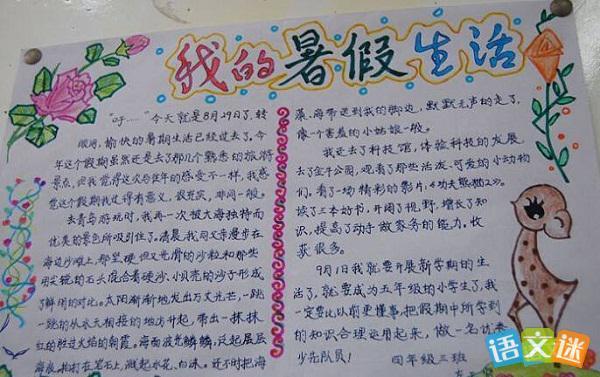 我的暑假生活
“吁……”今天就是8月29日了,转
眼间,愉快的暑期生活已经过去了,今
年这个假期虽然还是去了那几个熟悉的旅游
景点,但我觉得这次与往年的感受不一样,我感
觉这个假期我过得有意义,很充实,非同一般。
去青岛游玩时,我再一次被大海独特而
优美的景色所吸引住了。清晨,我同父亲漫步在
海边沙滩上,那坚硬但又光滑的沙粒和那些
用尖锐的石头混合着硬沙、小贝壳的沙子形成
了鲜明的对比。太阳渐渐地发出万丈光芒,一跳
一跳的从水天相接的地方升起,带出一抹抹
红的胜过火焰的朝霞。海面波光鳞鳞,泛起层层
海浪,拍打在岩石上,溅起水花、白沫。还不时把海
藻、海带送到我的脚边,默默无声的走了,
像一个害羞的小姑娘一般。
我还去了科技馆,体验科技的发展
去了金牛公园,观看了那些活泼、可爱的小动物
们,看了一场精彩的影片:《功夫熊猫2》。
读了三本好书,开阔了视野,增长了知
识,提高了动手做家务的能力,收
获很多。
9月1日我就要开展新学期的生
活了,就要成为五年级的小学生了,我一
定要比以前更懂事,把假期中所学到
的知识合理运用起来,做一名优秀
少先队员!
四年级三班
语文迷